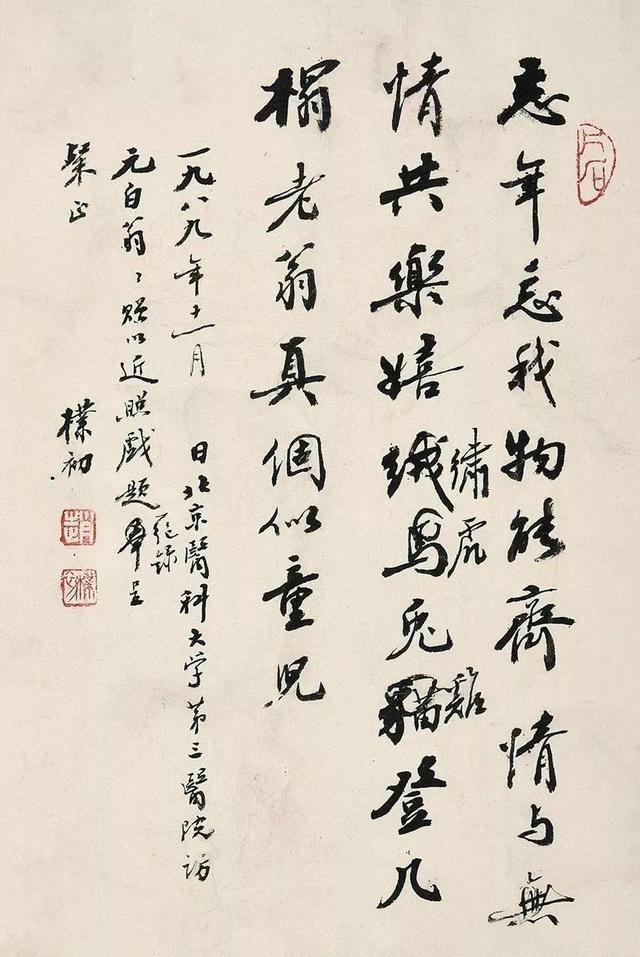 忘年忘我物能齊情与無
情共樂嬉絨馬兔貓登几
繡虎
雞
榻老翁真個似童兒
一九八九年十一月 日北京醫科大学第三醫院訪
元白翁〻贻以近照戲題奉呈
一絕録
粲正
樸初